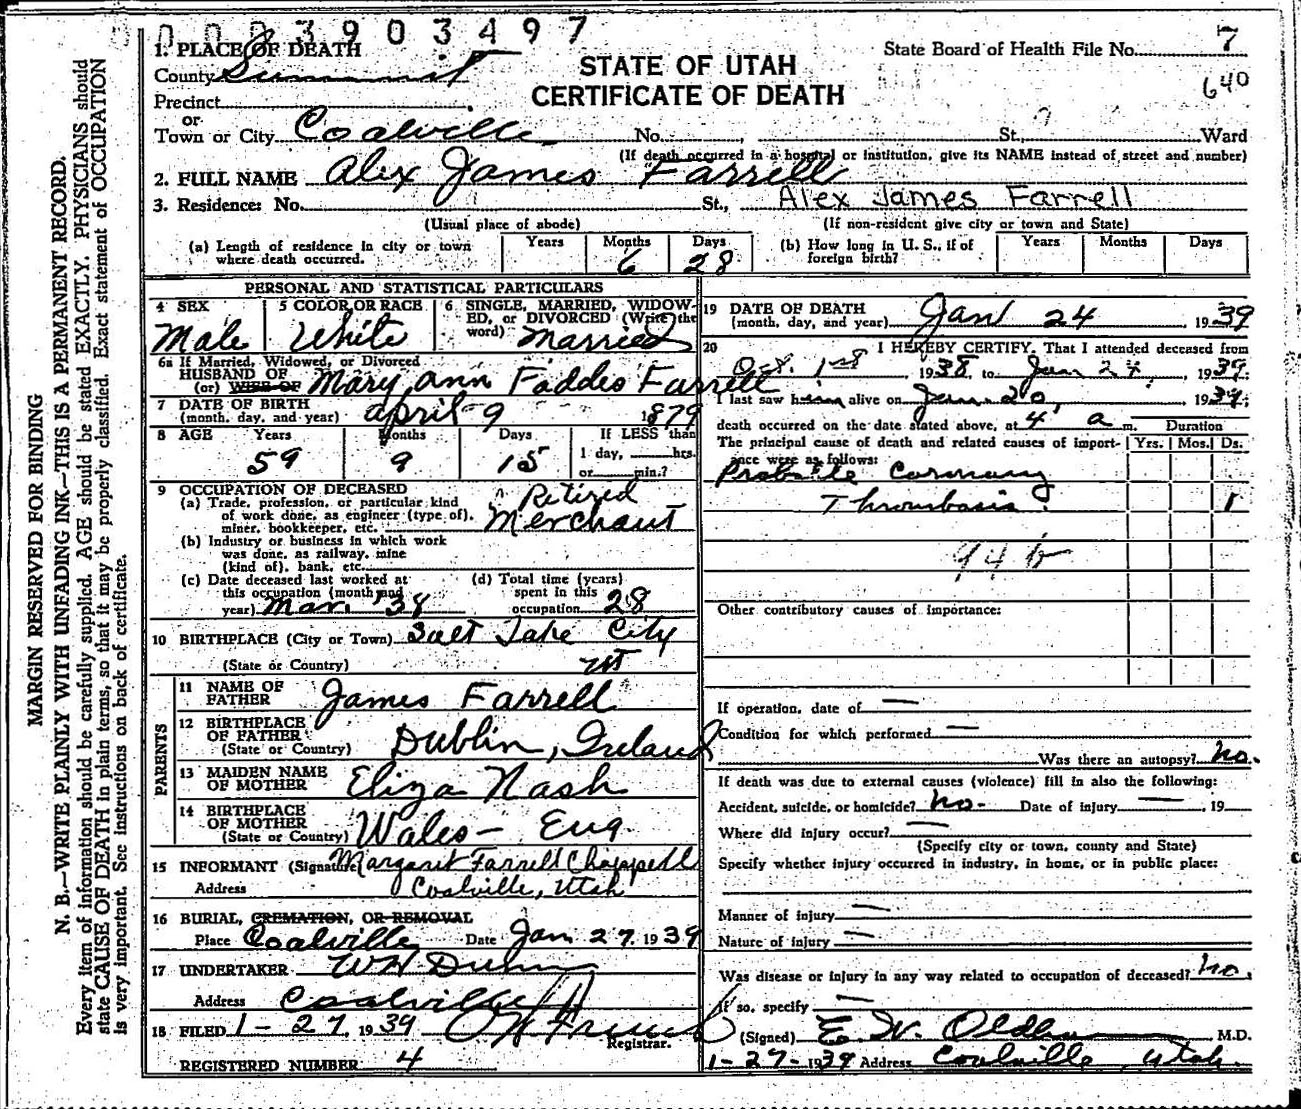 0003903497
1. PLACE OF DEATH
County Summit
Precinct
or
Town or City Coalville No. , St., Ward
(If death occurred in a hospital or institution, give its NAME instead of street and number)
STATE OF UTAH
CERTIFICATE OF DEATH
State Board of Health File No. 7
640
2. FULL NAME Alex James Farrell
3. Residence: No. St., Alex James Farrell
(Usual place of abode) (If non-resident give city or town and State)
(a) Length of residence in city or town where death occurred. Years Months 6 Days 28
(b) How long in U. S., if of foreign birth? Years Months Days
PERSONAL AND STATISTICAL PARTICULARS
4 SEX Male
5 COLOR OR RACE White
6 SINGLE, MARRIED, WIDOWED, or DIVORCED (Write the word) Married
6a If Married, Widowed, or Divorced
HUSBAND OF
(or) WIFE OF Mary Ann Faddes Farrell
7 DATE OF BIRTH
(month, day, and year) April 9 1879
8 AGE Years 59 Months 9 Days 15 If LESS than 1 day, hrs. or min.?
9 OCCUPATION OF DECEASED
(a) Trade, profession, or particular kind of work done, as engineer (type of), miner, bookkeeper, etc. Retired Merchant
(b) Industry or business in which work was done, as railway, mine (kind of), bank, etc.
(c) Date deceased last worked at this occupation (month and year) Mar. '38
(d) Total time (years) spent in this occupation 28
10 BIRTHPLACE (City or Town) Salt Lake City
(State or Country) Ut
PARENTS
11 NAME OF FATHER James Farrell
12 BIRTHPLACE OF FATHER (State or Country) Dublin, Ireland
13 MAIDEN NAME OF MOTHER Eliza Nash
14 BIRTHPLACE OF MOTHER (State or Country) Wales - Eng.
15 INFORMANT (Signature) Margaret Farrell Chappell
Address Coalville, Utah
16 BURIAL, CREMATION, OR REMOVAL
Place Coalville Date Jan 27, 1939
17 UNDERTAKER W H Dunn
Address Coalville
18 FILED 1-27, 1939
Registrar.
REGISTERED NUMBER 4
19 DATE OF DEATH
(month, day, and year) Jan 24 1939
20 I HEREBY CERTIFY, That I attended deceased from
Oct. 1st 1938, to Jan 24, 1939;
I last saw him alive on Jan. 20, 1939;
death occurred on the date stated above, at 4 a m. Duration
The principal cause of death and related causes of importance were as follows: Yrs. Mos. Ds.
Probable Coronary
Thrombosis 1
94b
Other contributory causes of importance:
If operation, date of —
Condition for which performed —
Was there an autopsy? no.
If death was due to external causes (violence) fill in also the following:
Accident, suicide, or homicide? no- Date of injury — , 19
Where did injury occur? —
(Specify city or town, county and State)
Specify whether injury occurred in industry, in home, or in public place:
Manner of injury —
Nature of injury —
Was disease or injury in any way related to occupation of deceased? no.
If so, specify —
(Signed) E. W. Oldham M.D.
1-27-1939 Address Coalville, Utah.
MARGIN RESERVED FOR BINDING
N. B.—WRITE PLAINLY WITH UNFADING INK—THIS IS A PERMANENT RECORD.
Every item of information should be carefully supplied. AGE should be stated EXACTLY. PHYSICIANS should
state CAUSE OF DEATH in plain terms, so that it may be properly classified. Exact statement of OCCUPATION
is very important. See instructions on back of certificate.